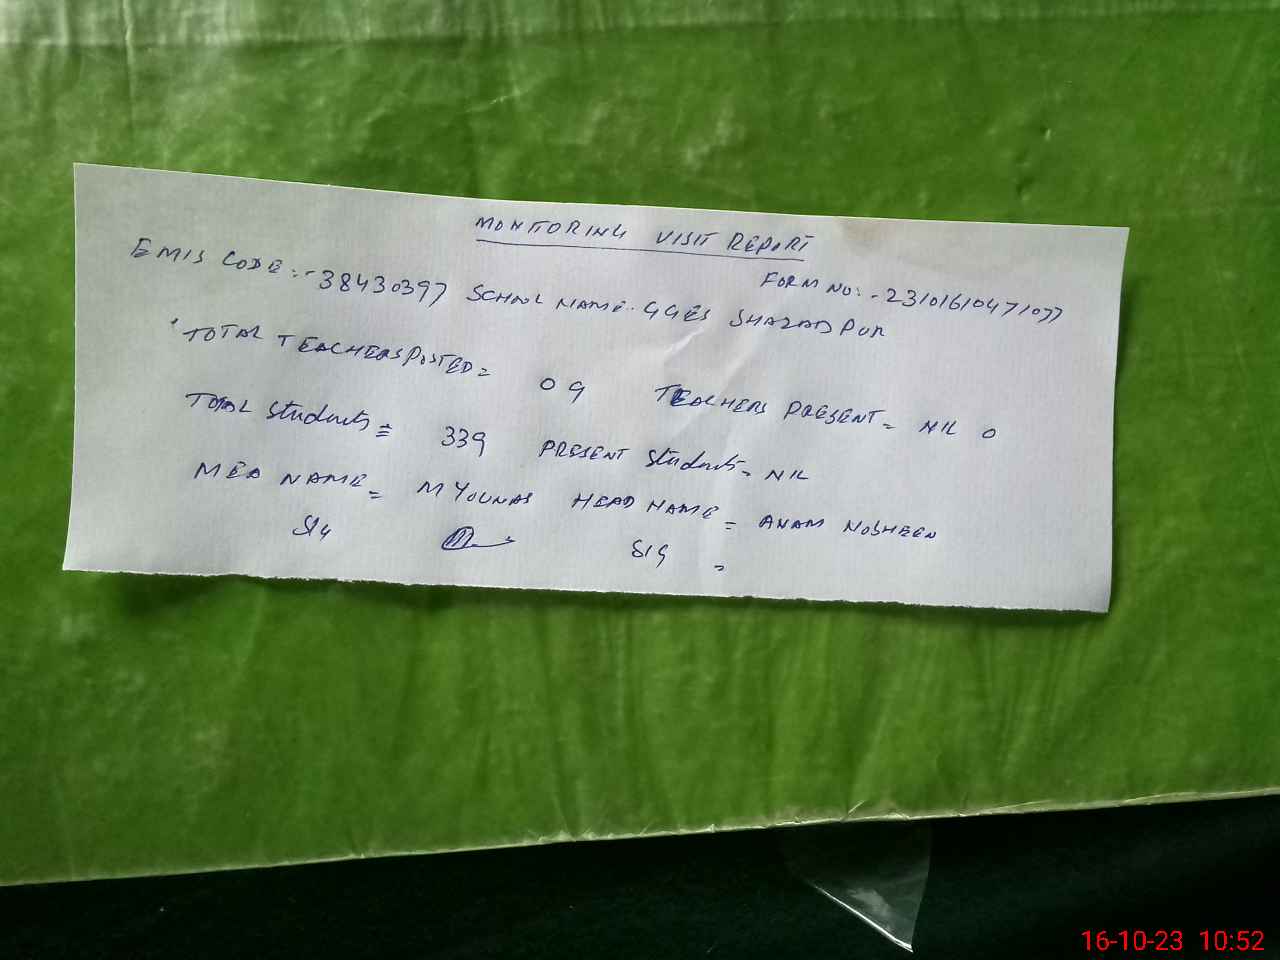 MONITORING VISIT REPORT
FORM NO:- 23101610471077
EMIS CODE:- 38430397 SCHOOL NAME.. GGES SHAZADPUR
TOTAL TEACHERS POSTED= 09 TEACHERS PRESENT= NIL 0
TOTAL Students = 339 PRESENT Students= NIL
MEA NAME= M YOUNAS HEAD NAME= ANAM NOSHEEN
SIG SIG =
16-10-23 10:52